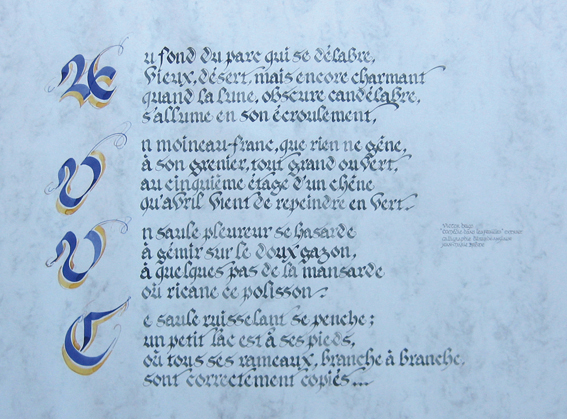 Au fond du parc qui se délabre,
Vieux, désert, mais encore charmant
quand la lune, obscure candélabre,
s'allume en son écroulement,
Un moineau-franc, que rien ne gêne,
à son grenier, tout grand ouvert,
au cinquième étage d'un chêne
qu'avril vient de repeindre en vert.
Un saule pleureur se hasarde
à gémir sur le doux gazon,
à quelques pas de la mansarde
où ricane ce polisson.
Ce saule ruisselant se penche ;
un petit lac est à ses pieds,
où tous ses rameaux, branche à branche,
sont correctement copiés...
Victor Hugo